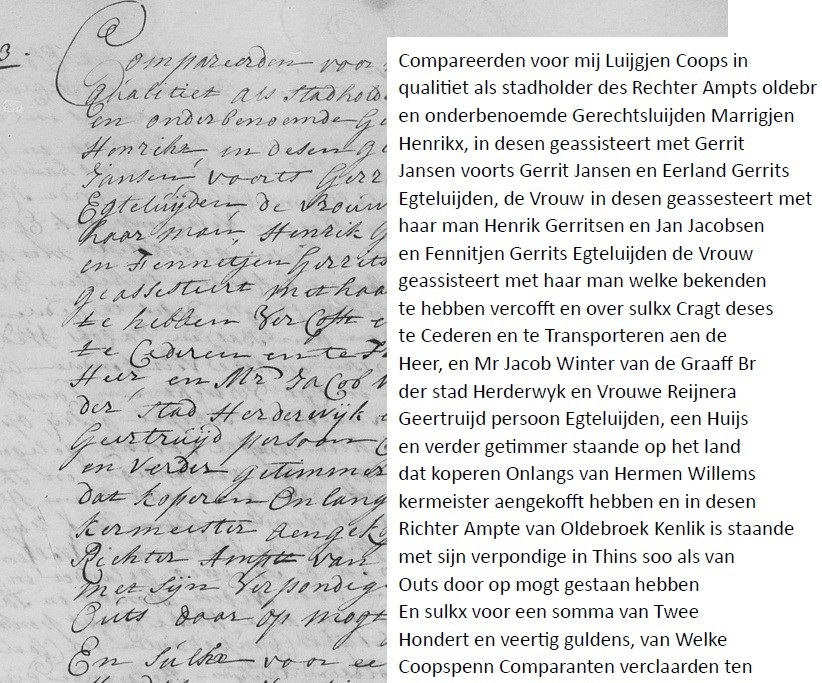 3.
Compareerden voor
qualitiet als stadhold
en onderbenoemde Ge
Henrikx, in desen ge
Jansen, voorts Gerr
Egteluijden, de Vrouw
haar man, Henrik G
en Fennitjen Gerrits
geassisteert met haa
te hebben Ver Cofft e
te Cederen en te T
Heer, en Mr Jacob
der, stad Herderwijk
Geertruijd persoon
en Verder getimmer
dat koperen Onlang
kermeister aengek
Richter Ampte van
met sijn Verpondig
Outs daar op mogt
En sulkx voor ee
Compareerden voor mij Luijgjen Coops in
qualitiet als stadholder des Rechter Ampts oldebr
en onderbenoemde Gerechtsluijden Marrigjen
Henrikx, in desen geassisteert met Gerrit
Jansen voorts Gerrit Jansen en Eerland Gerrits
Egteluijden, de Vrouw in desen geassesteert met
haar man Henrik Gerritsen en Jan Jacobsen
en Fennitjen Gerrits Egteluijden de Vrouw
geassisteert met haar man welke bekenden
te hebben vercofft en over sulkx Cragt deses
te Cederen en te Transporteren aen de
Heer, en Mr Jacob Winter van de Graaff Br
der stad Herderwyk en Vrouwe Reijnera
Geertruijd persoon Egteluijden, een Huijs
en verder getimmer staande op het land
dat koperen Onlangs van Hermen Willems
kermeister aengekofft hebben en in desen
Richter Ampte van Oldebroek Kenlik is staande
met sijn verpondige in Thins soo als van
Outs door op mogt gestaan hebben
En sulkx voor een somma van Twee
Hondert en veertig guldens, van Welke
Coopspenn Comparanten verclaarden ten